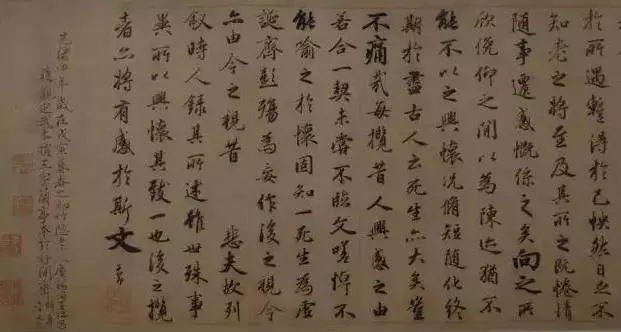 於所遇暫得於己怏然自足不
知老之將至及其所之既惓情
隨事遷感慨係之矣向之所
欣俛仰之閒以為陳迹猶不
能不以之興懷況脩短隨化終
期於盡古人云死生亦大矣豈
不痛哉每攬昔人興感之由
若合一契未嘗不臨文嗟悼不
能喻之於懷固知一死生為虛
誕齊彭殤為妄作後之視今
亦由今之視昔 悲夫故列
敘時人錄其所述雖世殊事
異所以興懷其致一也後之攬
者亦將有感於斯文
光緒四年歲在戊寅暮春之初